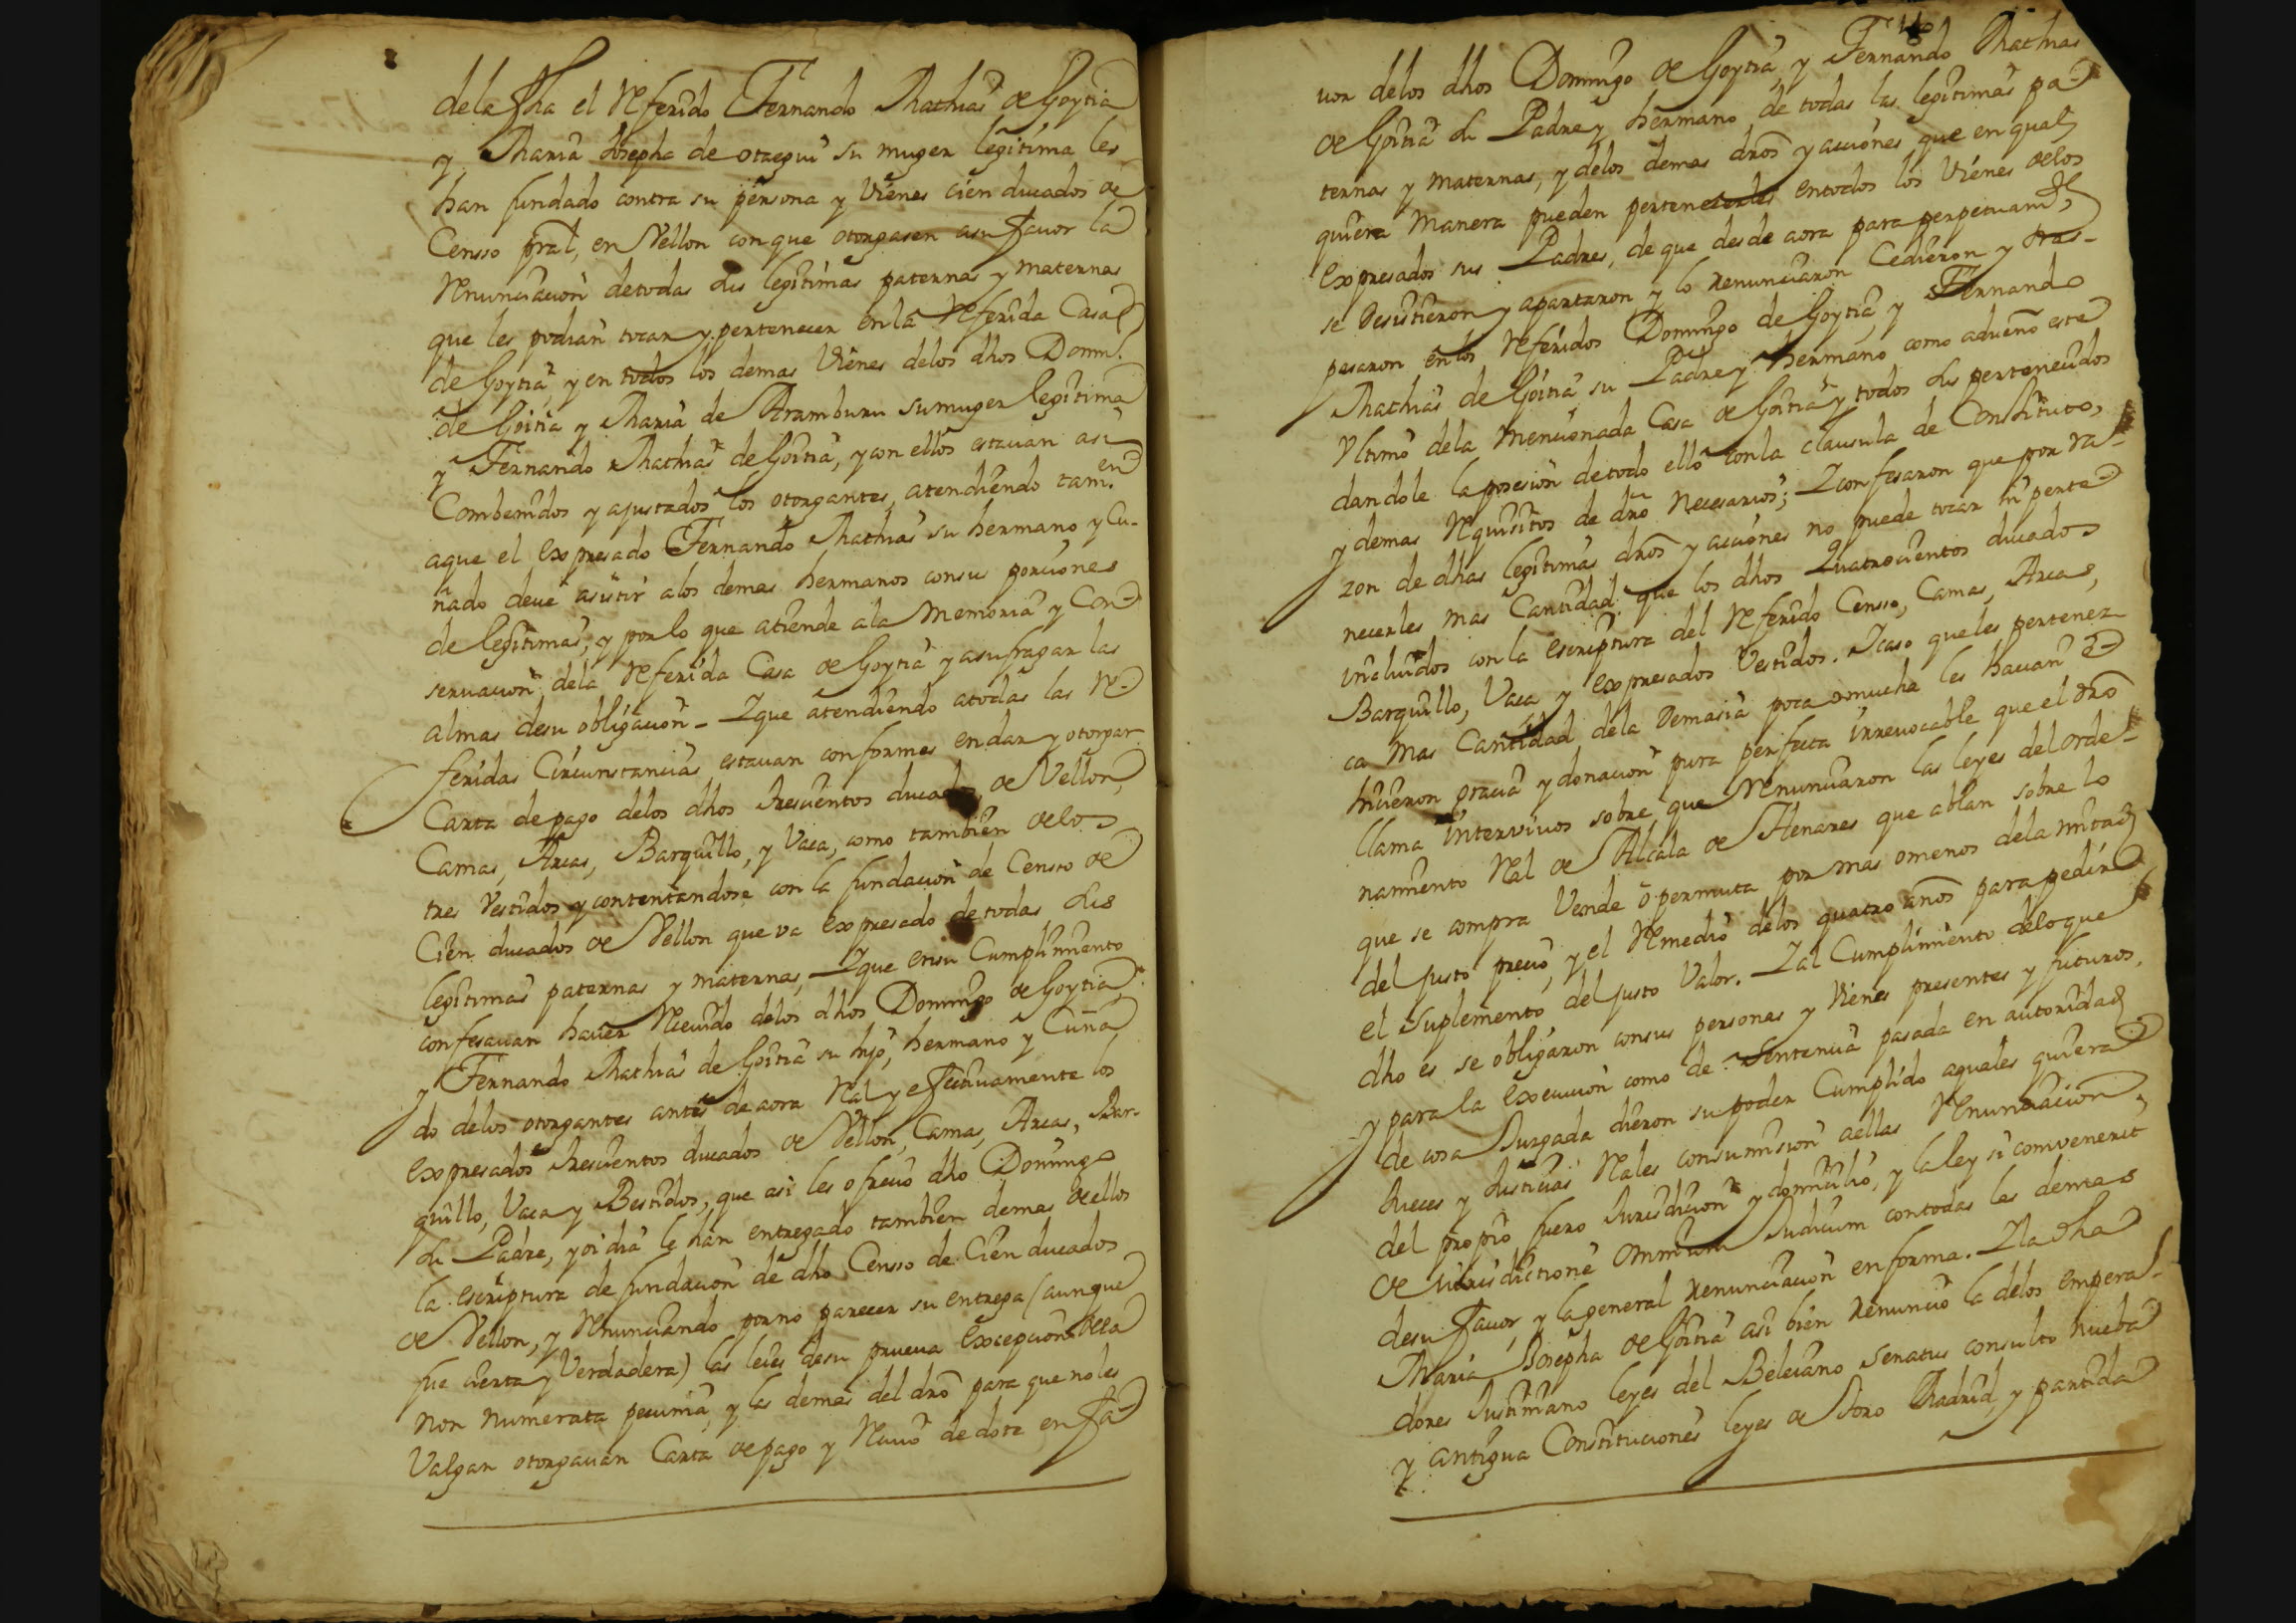 dela fha el Referido Fernando Mathias de Goytia
y Maria Josepha de otaegui su muger legitima les
han fundado contra su persona y Vienes cien ducados de
Censso pral, en Vellon con que otorgasen asu favor la
Renunciacion detodas sus legitimas paternas y maternas
que les podian tocar y pertenecer en la Referida Casa
de Goytia, y en todos los demas Vienes delos dhos Domo.
de Goitia y Maria de Aramburu su muger legitima
y Fernando Mathias de Goitia, y con ellos estavan asi
Combenidos y ajustados los otorgantes, atendiendo tamen
aque el expresado Fernando Mathias su hermano y Cu-
ñado deve asistir alos demas hermanos consus porciones
de legitimas, y porlo que atiende ala memoria y Con-
servacion dela Referida Casa de Goytia y asufragar las
almas desu obligacion - Y que atendiendo atodas las Re-
feridas Circunstancias estavan conformes en dar y otorgar
Carta de pago delos dhos trescientos ducados de Vellon,
Camas, Arcas, Barquillo, y Vaca, como tambien delos
tres Vestidos y contentandose con la fundacion de Censo de
Cien ducados de Vellon que va expresado de todas sus
legitimas paternas y maternas, Y que ensu Cumplimiento
confesavan haver Recivido delos dhos Domingo de Goytia,
y Fernando Mathias de Goitia su hijo, hermano y Cuña
do delos otorgantes antes de aora Ral y efectivamente los
expresados trescientos ducados de Vellon, Camas, Arcas, Bar-
quillo, Vaca y Bestidos, que asi les ofrecio dho Domingo
su Padre, y oi dia le han entregado tambien demas de ellos
la escriptura de fundacion de dho Censso de Cien ducados
de Vellon, y Renunciando por no parecer su entrega (aunque
fue cierta y Verdadera) las leies desu prueva excepcion dela
non numerata pecunia, y las demas del dro para que no les
Valgan otorgavan Carta de pago y Recivo de dote en fa-
vor delos dhos Domingo de Goytia, y Fernando Mathias
de Goitia su Padre y hermano, de todas las legitimas pa-
ternas y maternas, y delos demas dros y acciones que en qual
quiera manera pueden pertenecerles entodos los Vienes delos
expresados sus Padres, de que desde aora para perpetuamte
se desistieron y apartaron y lo renunciaron Cedieron y tras-
pasaron en los Referidos Domingo de Goytia, y Fernando
Mathias de Goitia su Padre y hermano como adueño este
Ultimo dela mencionada Casa de Goitia y todos sus pertenecidos
dandole la posesion detodo ello con la clausula de Constituto,
y demas Requisitos de dro necesarios; Y confesaron que por ra-
zon de dhas legitimas dros y acciones no puede tocar ni perte
necerles mas Cantidad que los dhos Quatrocientos ducados
incluidos con la escriptura del Referido Censso, Camas, Arcas,
Barquillo, Vaca y expresados Vestidos. Y caso que les pertenez-
ca mas Cantidad dela demasia poca omucha les havian e
hicieron gracia y donacion pura perfecta irrevocable que el dro
llama intervivos sobre que Renunciaron las leyes del orde-
namiento Ral de Alcala de Henares que ablan sobre lo
que se compra Vende o permuta por mas omenos dela mitad
del justo precio, y el Remedio delos quatro años para pedir
el suplemento del justo Valor. Y al Cumplimiento delo que
dho es se obligaron consus personas y Vienes presentes y futuros,
y para la execucion como de Sentencia pasada en autoridad
de cosa Juzgada dieron su poder Cumplido aquales quiera
Jueces y Justicias Rales consumision aellas Renunciacion
del propio fuero Jurisdicion y domicilio, y la ley si convenerit
de Jurisdictione omnium Judicum contodas las demas
desu favor, y la general renunciacion en forma. Y la dha
Maria Josepha de Goitia asi bien renuncio la delos empera-
dores Justiniano leyes del Beleiano Senatus consulto nueba
y antigua Constituciones leyes de toro Madrid, y partida